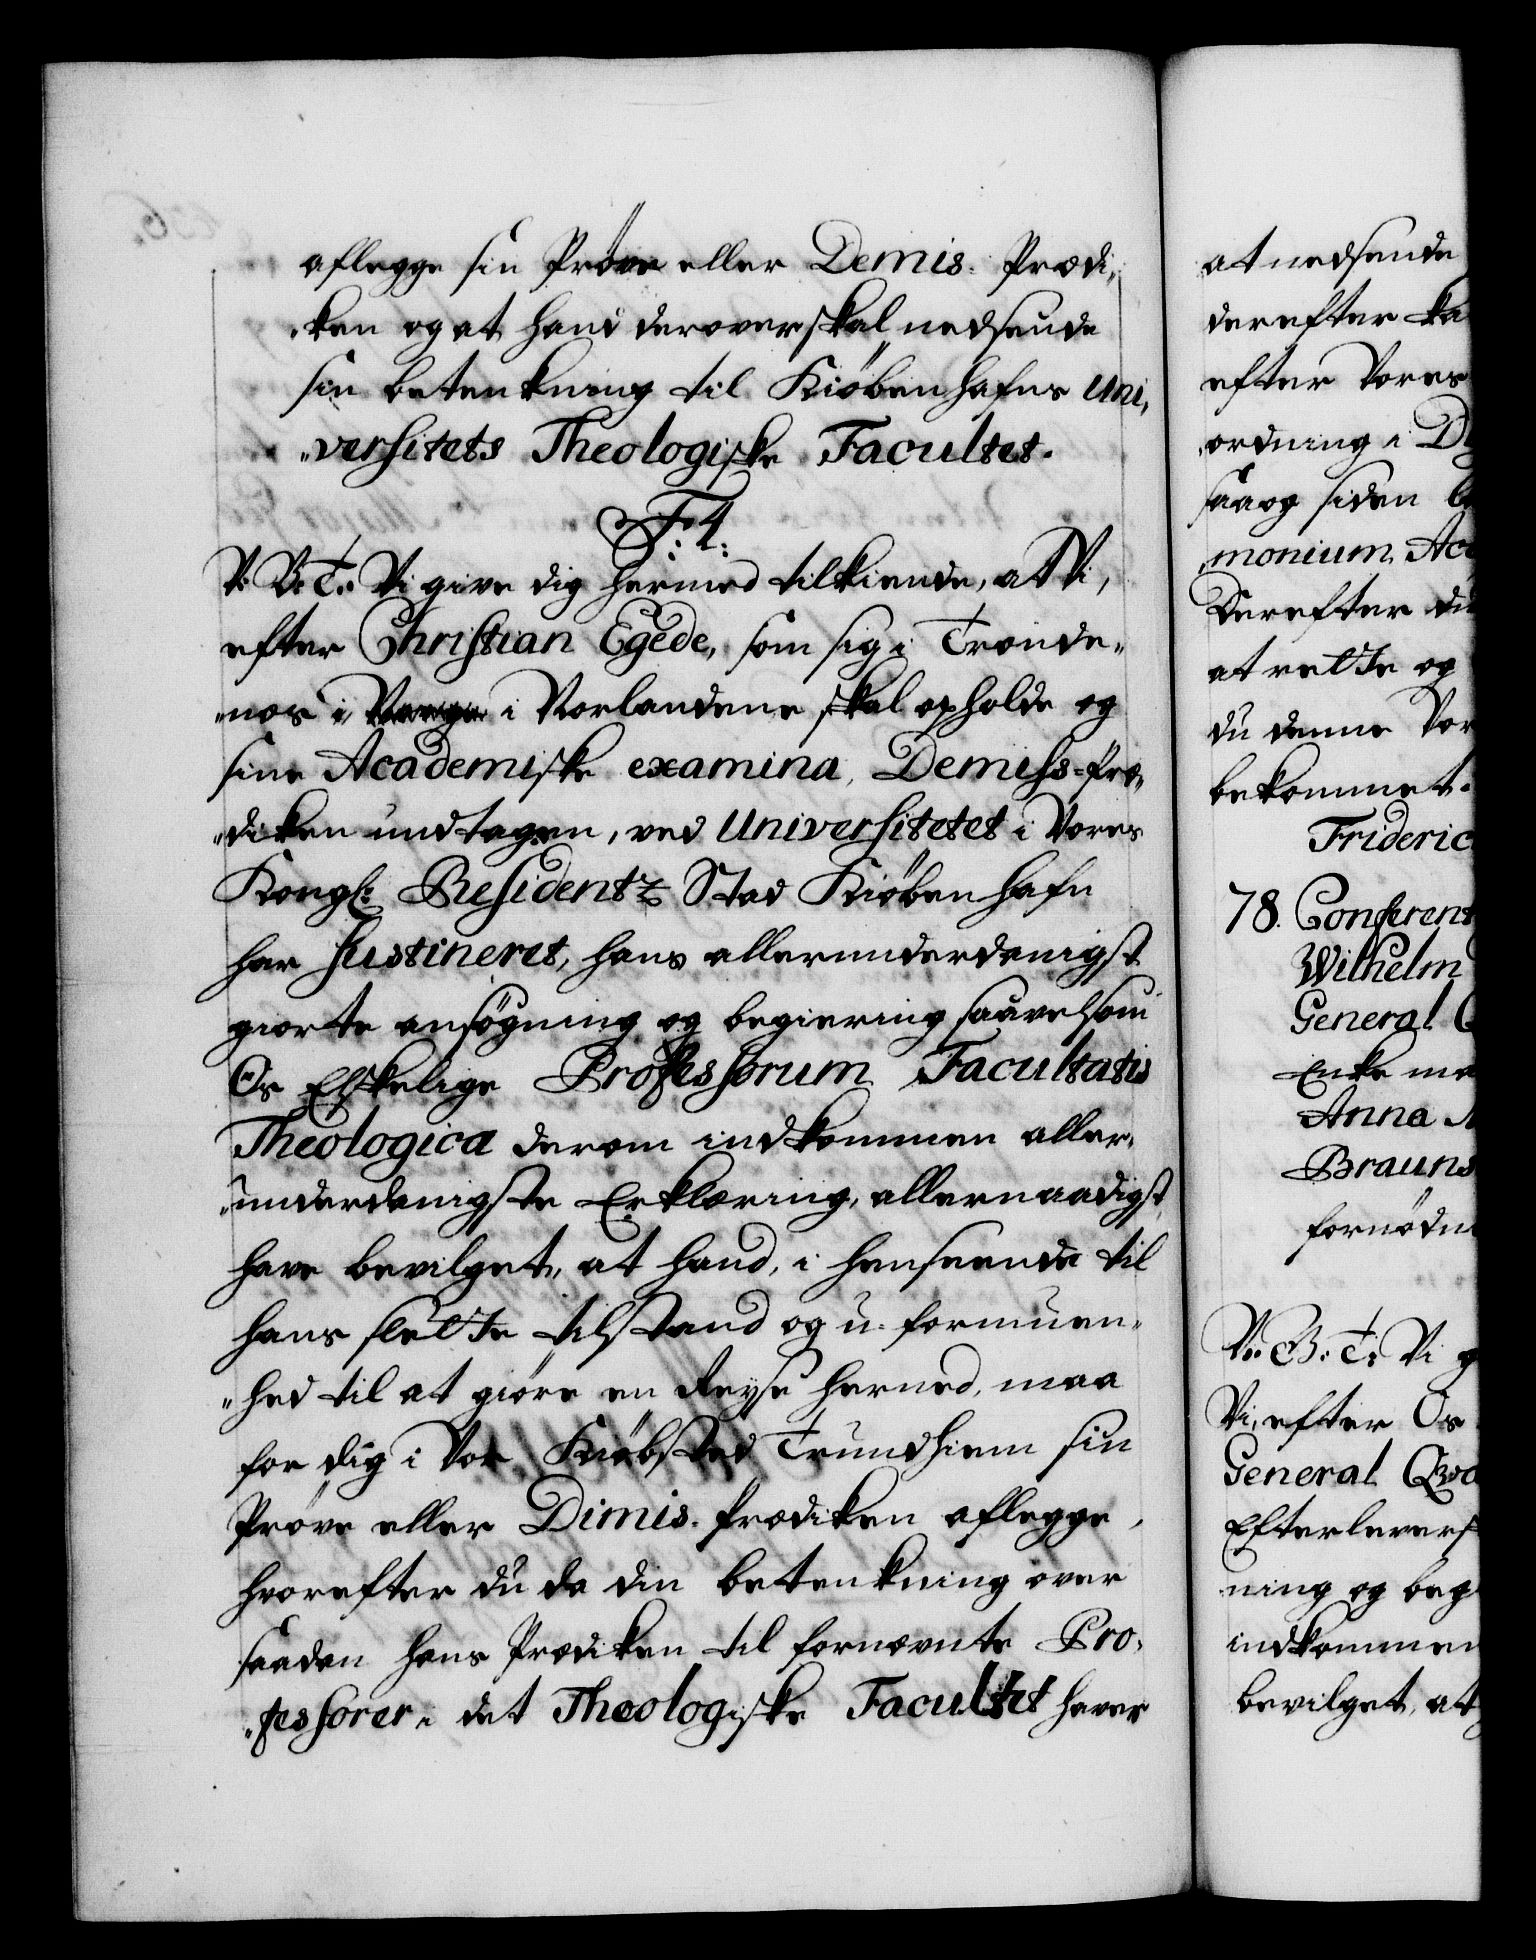 aflegge sin Prøve eller Demis. Prædi„
„ken og at hand derover skal nedsende
sin betenkning til Kiøbenhafns Uni„
„versitets Theologiske Facultet.
F: 4.
V: G: T: Vi give dig hermed tilkiende, at Vi,
efter Christian Egede, som sig i Tronde„
„nes i Norge i Norlandene skal opholde og
sine Academiske examina, Demiss-Præ„
„diken undtagen, ved Universitetet i Vores
Kongl: Residentz Stad Kiøbenhafn
har sustineret, hans allerunderdanigst
giorte ansøgning og begiering saavelsom
Os Elskelige Professorum Facultatis
Theologica derom indkommen aller„
„underdanigste Erklæring, allernaadigst
have bevilget, at hand, i henseende til
hans slette tilstand og u-formuen„
„hed til at giøre en Reyse herned, maa
for dig i Vor Kiøbsted Trundhiem sin
Prøve eller Dimis-Prædiken aflegge,
hvorefter du da din betenkning over
saadan hans Prædiken til fornævnte Pro„
„fessorer i det Theologiske Facultet haver
at nedsende
derefter
efter Vores
ordning i
saa og siden
monium
Derefter du
at rette og
du denne
bekommet.
Frideric
78. Conferent
Wilhelm
General
Enke
Anna
Brauns
fornødne
V: G: T: Vi
Vi, efter Os
General
Efterlevers
ning og beg
indkommen
bevilget, at